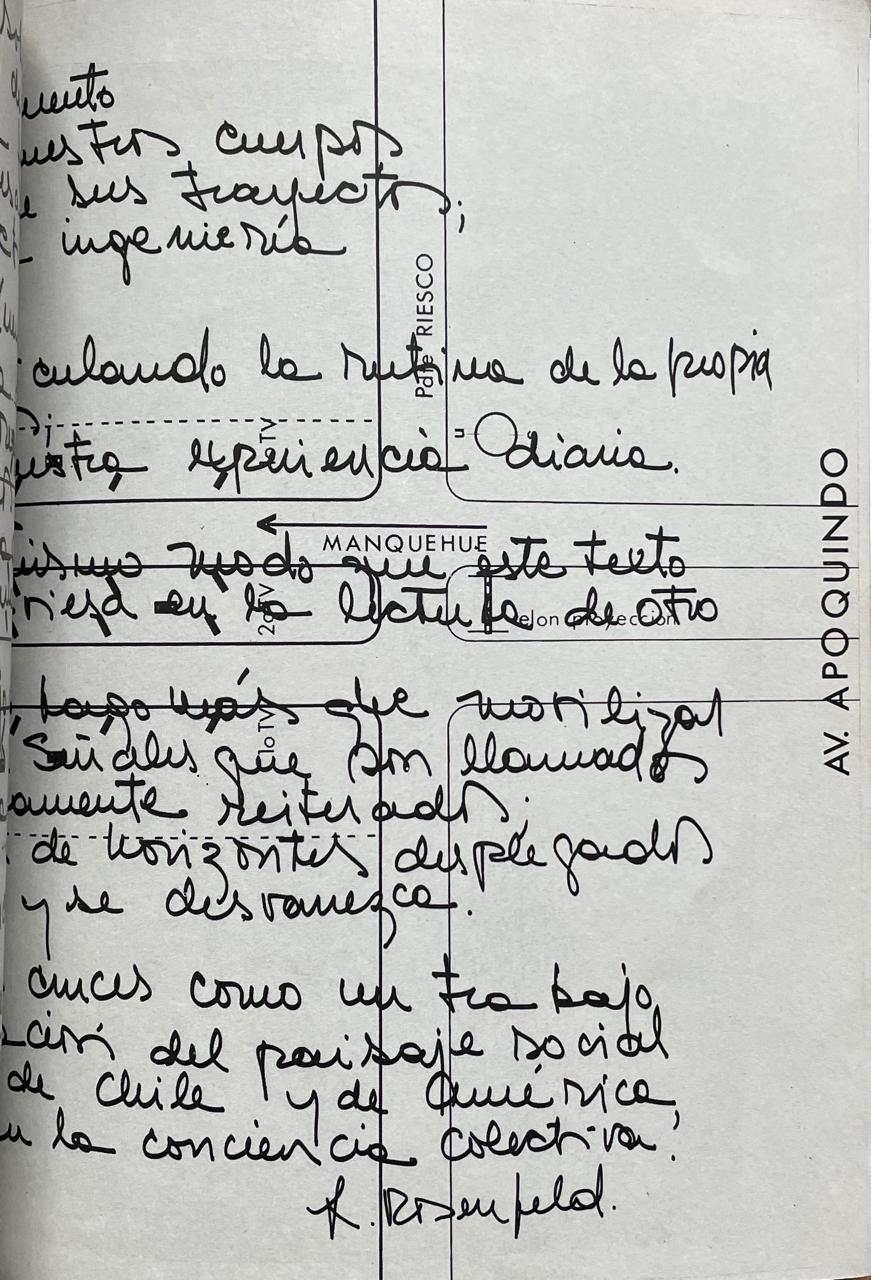 mento
uestros cuerpos
e sus trayectos,
ingeniería
Pdte RIESCO
culando la rutina de la propia
TV
uestra experiencia diaria.
MANQUEHUE
AV. APOQUINDO
mismo modo que este texto
en la lectura de otro
2o TV
telon proyeccion
hago más que movilizar
1o TV
señales que son llamados
amente reiterados;
de horizontes desplegados
y se desvanezca.
cruces como un trabajo
ción del paisaje social
de Chile y de América,
n la conciencia colectiva.
L. Rosenfeld.